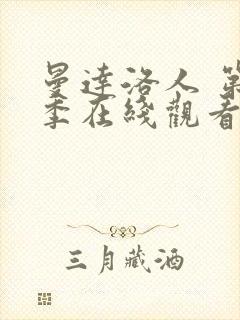 曼達洛人 第
季在綫觀看
三月藏酒